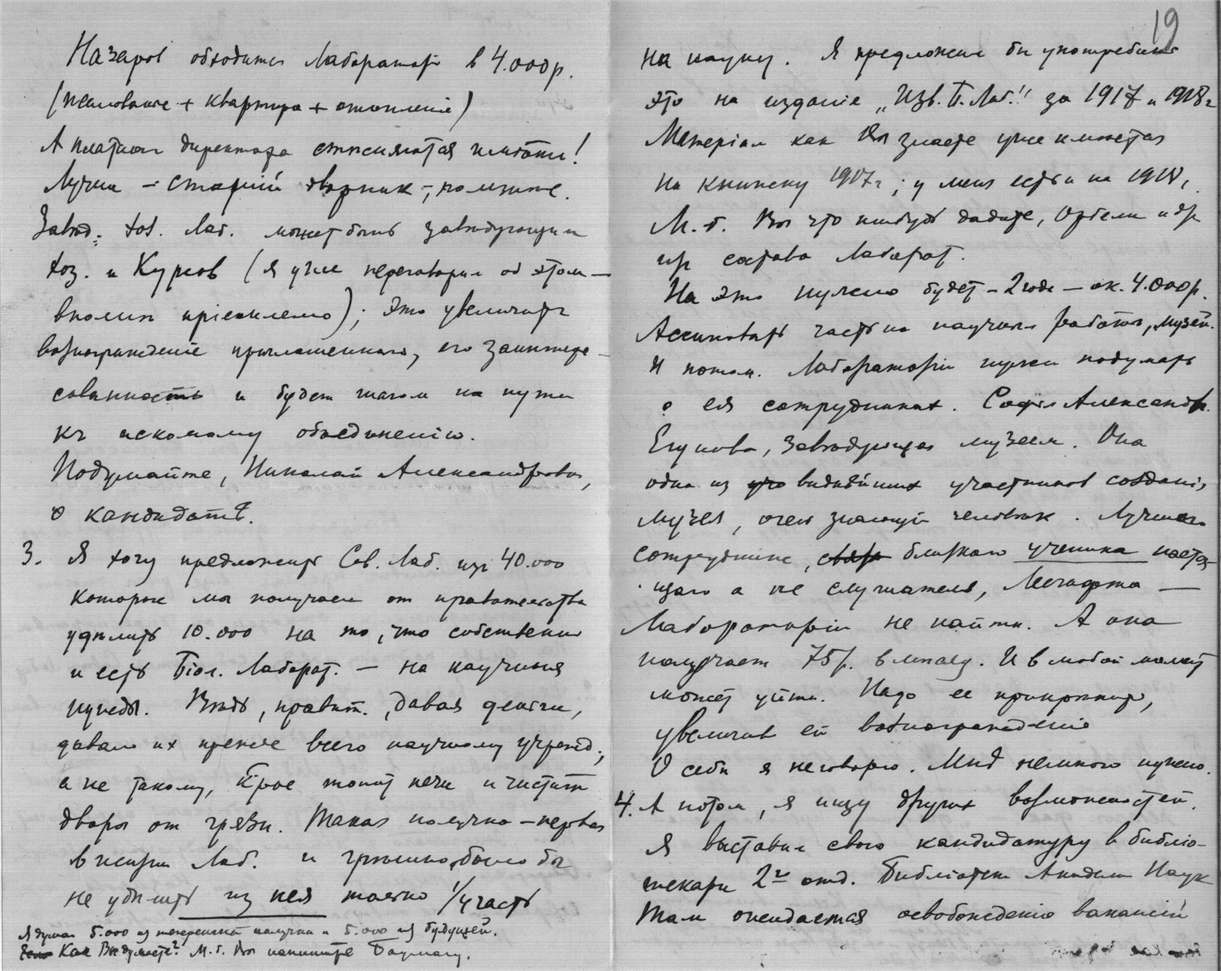 Назаров обходится Лаборатор. в 4.000р.
(жалованье + квартира + отопленіе)
А платном директора стѣсняются имѣть!
Лучше – старшій дворник –, помните.
Завѣд. хоз. Лаб. может быть завѣдующим
хоз. и Курсов (я уже переговорил об этом —
вполнѣ пріемлемо); это увеличит
вознагражденіе приглашеннаго, его заинтере-
сованность и будет шагом на пути
къ искомому объединенію.
Подумайте, Николай Александрович,
о кандидатѣ.
3. Я хочу предложить Сов. Лаб. из 40.000
которые мы получаем от правительства
удѣлить 10.000 на то, что собственно
и есть Біол. Лаборат. – на научныя
нужды. Вѣдь, правит., давая деньги,
давало их прежде всего научному учрежд.,
а не такому, ктрое топит печи и чистит
дворы от грязи. Такая получка – первая
в жизни Лаб. и грѣшно было бы
не удѣлить из нея только 1/4 часть
Я думаю 5.000 из теперешней получки и 5.000 из будущей.
Как Вы думаете? М.б. Вы напишите
19
на науку. Я предложил бы употребить
это на изданіе „Изв. Б. Лаб." за 1917 и 1918г
Матеріал как Вы знаете уже имѣется
на книжку 1917г; у меня есть и на 1918г.
М.б. Вы что нибудь дадите, Орбели и др
из состава Лаборат.
На это нужно будет – 2 года – ок. 4.000р.
Ассигновать часть на научн. работы, музей.
И потом. Лабораторіи нужно подумать
о ея сотрудниках. Софія Александр.
Егунова, завѣдующая музеем. Она
одна из виднѣйших участников созданія
музея, очень знающій человѣк. Лучшаго
сотрудника, близкаго ученика настоя-
щаго а не слушателя, Лесгафта —
Лабораторіи не найти. А она
получает 75р. в мѣсяц. И в любой момент
может уйти. Надо ее прикрѣпить,
увеличив ей вознагражденіе
О себѣ я не говорю. Мнѣ немного нужно.
4. А потом, я ищу других возможностей.
Я выставил свою кандидатуру в библіо-
текари 2го отд. Библіотеки Академ. Наук
Там ожидается освобожденіе вакансій